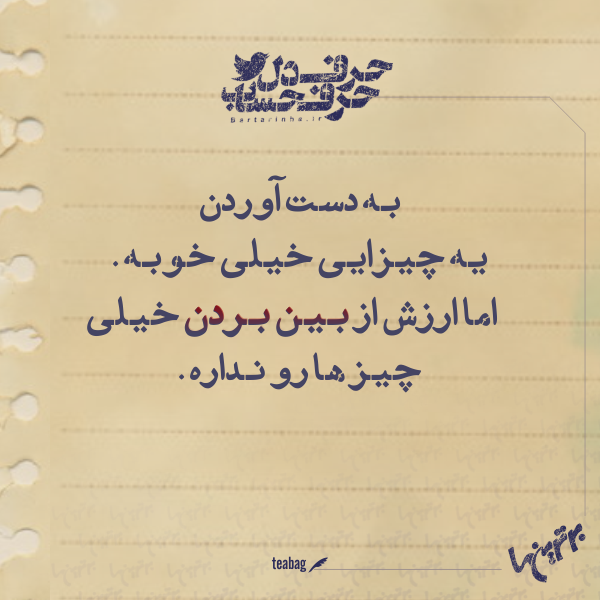 حرف دل
حرف حساب
Bartarinha.ir
به دست آوردن
یه چیزایی خیلی خوبه.
اما ارزش از بین بردن خیلی
چیزها رو نداره.
teabag
برترین‌ها